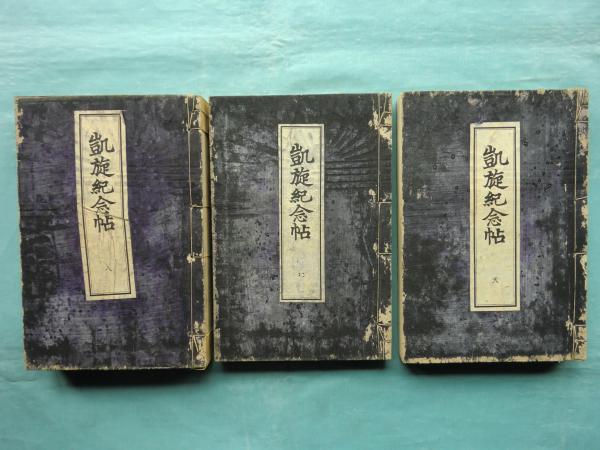 凱旋紀念帖
人
凱旋紀念帖
凱旋紀念帖
天